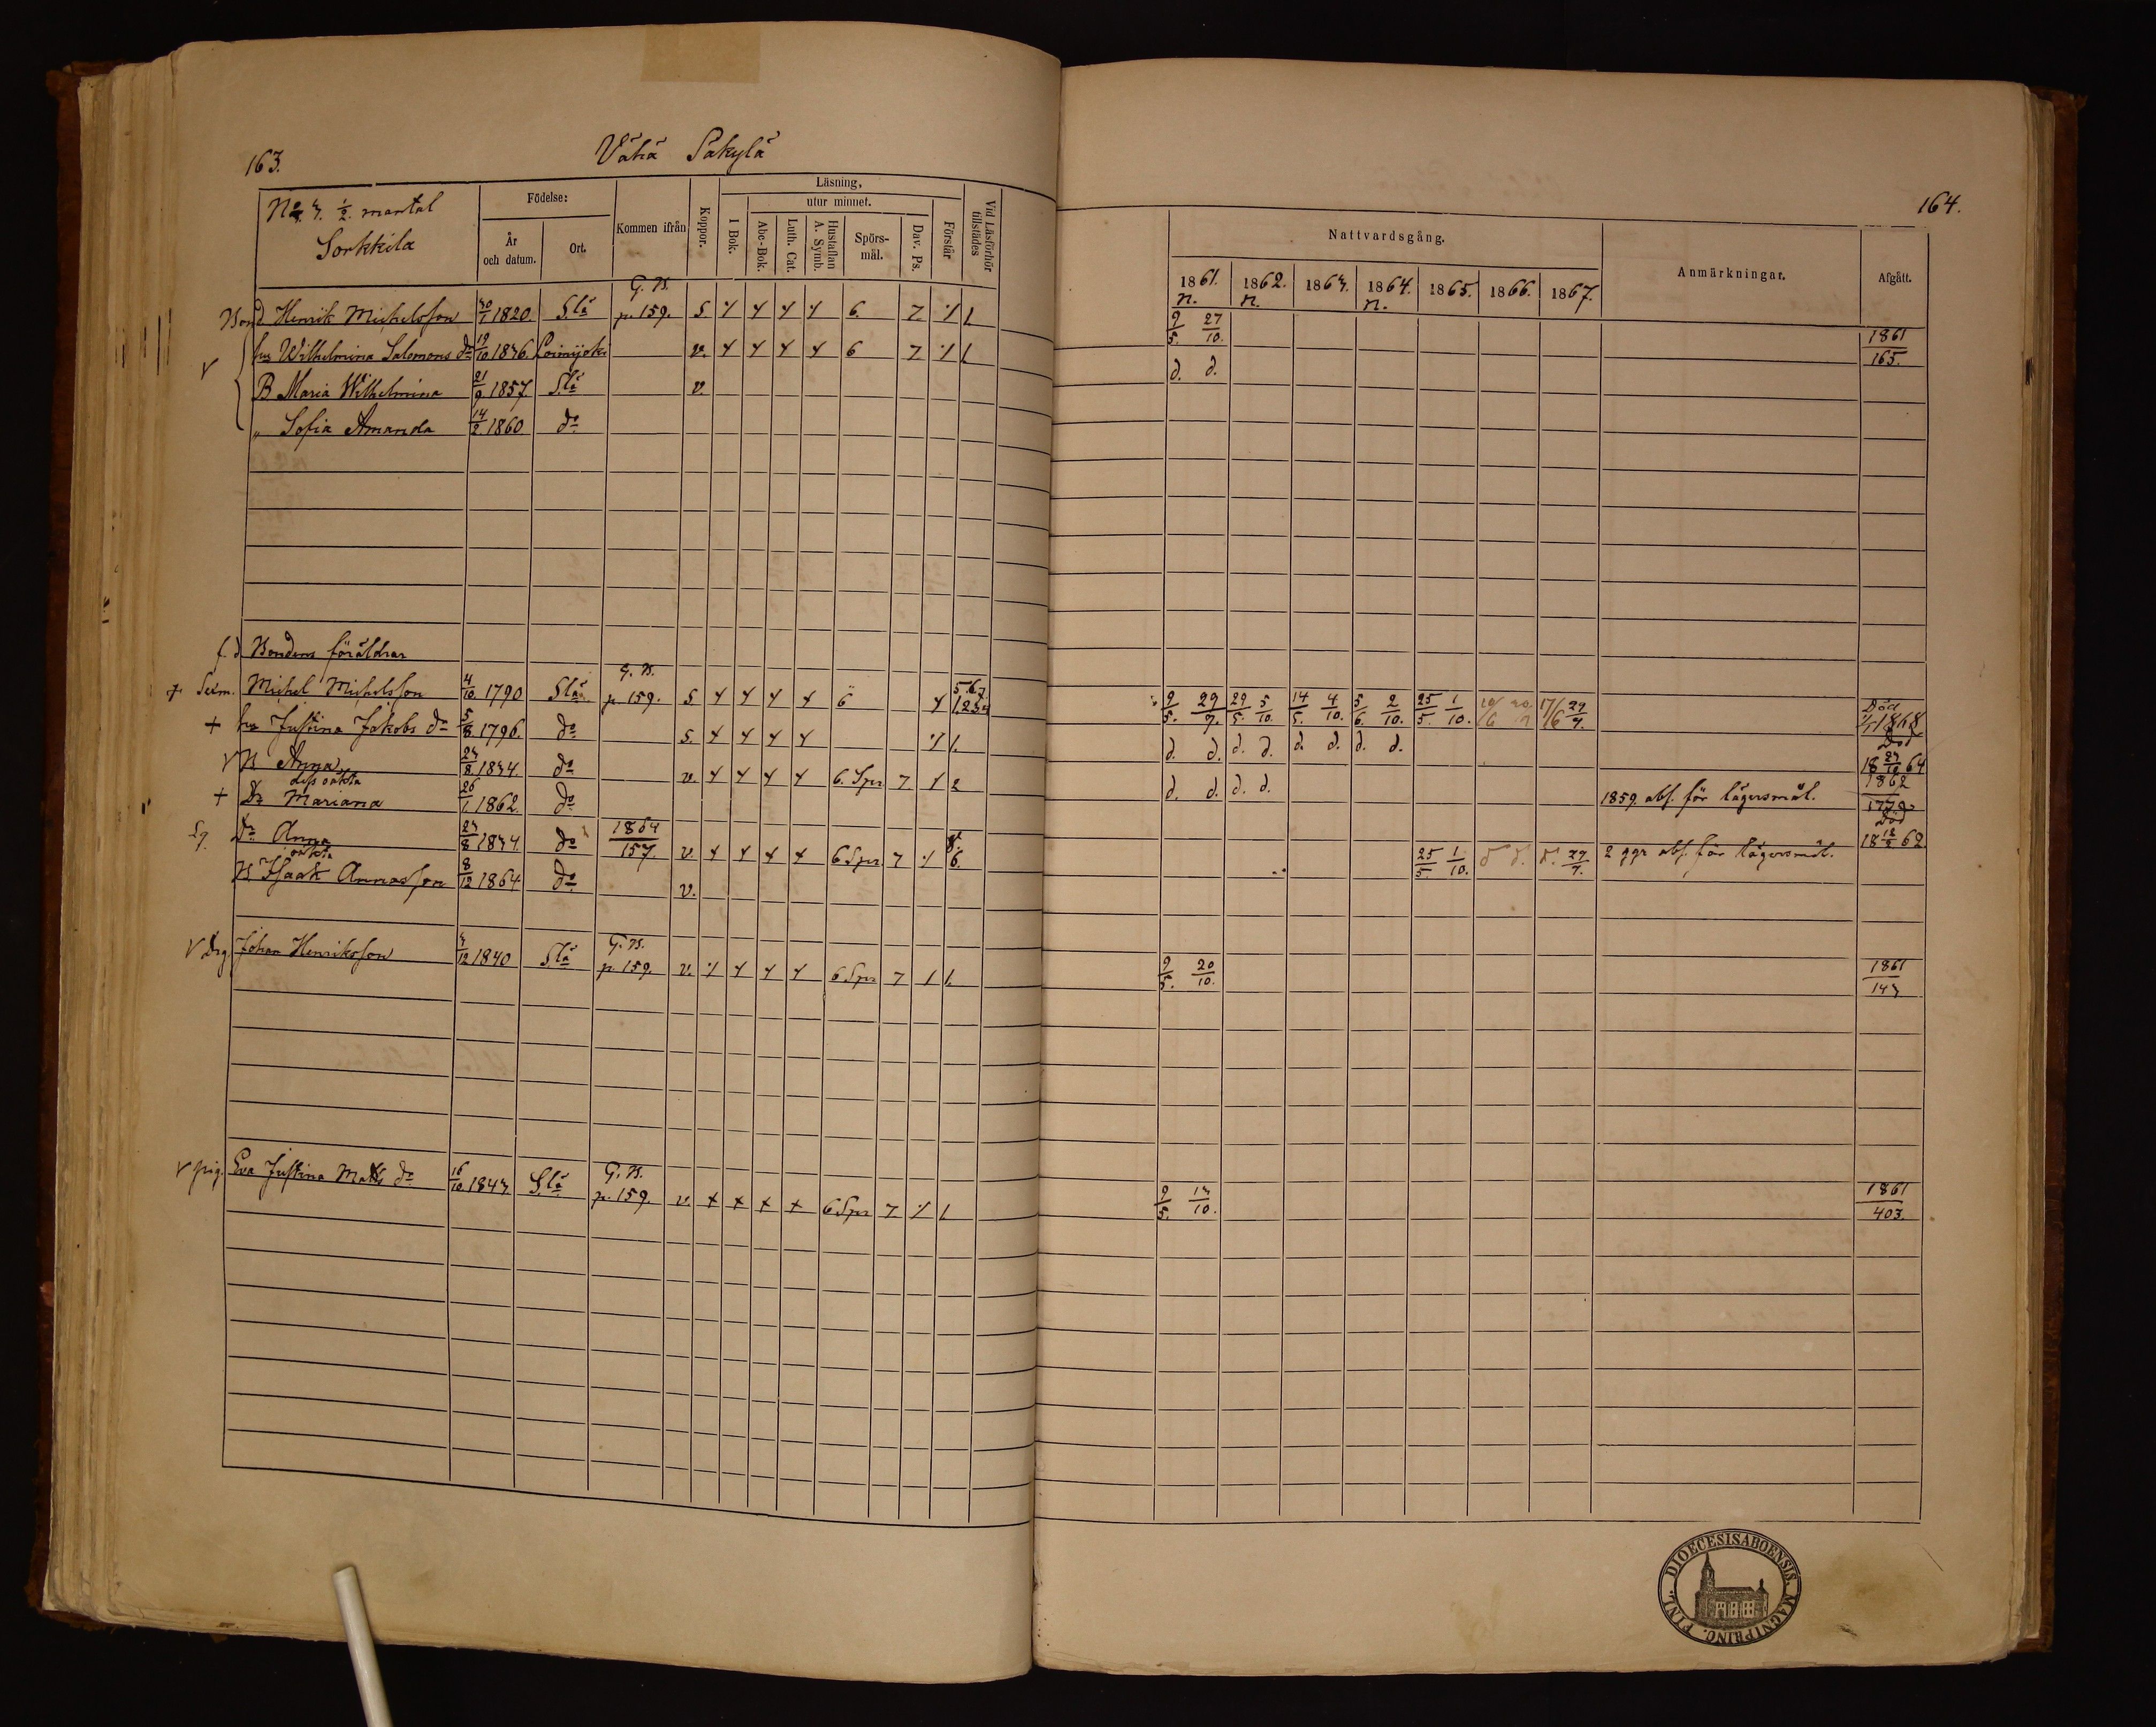 163.
Vähä Säkylä
No 3. 1/2. mantal
Sorkkila
Födelse:
År och datum.
Ort.
Kommen ifrån
Koppor.
Läsning,
I Bok.
utur minnet.
Abc-Bok.
Luth. Cat.
Hustaflan A. Symb.
Spörsmål.
Dav. Ps.
Förstår
Vid Läsförhör tillstädes
G. B.
Bond Henrik Michelsson 30/7 1820. S:lä p. 159. S. 6. 7 1.
hu Wilhelmina Salomons dr 19/10 1836. Loimijoki v. 6 7 1.
B Maria Wilhelmina 21/9 1857. S:lä v.
„ Sofia Amanda 14/2 1860 do
f. d. Bondens föräldrar
G. B.
Sexm. Michel Michelsson 4/10 1790 S:lä p. 159. S 6 5.6.7. 1.2.3.4
+ hu Justina Jakobs dr 5/8 1796. do S. 1.
B Anna 23/8 1834. do v. 6. Spr 7 1 2
dess oäkta
+ Dr Mariana 26/1. 1862. do
Dr Anna 23/8 1834. do 1864/157. v. 6 Spr 7 6.
oäkta
B Isaak Annasson 8/12 1864 do v.
G. B.
V drg. Johan Henriksson 3/12 1840 S:lä p. 159. v. 6 Spr 7 1 1.
G. B.
V pig. Eva Justina Matts dr 16/10 1843 S:lä p. 159. v. 6 Spr 7 1.
164.
Nattvardsgång.
Anmärkningar.
Afgått.
1861. 1862. 1863. 1864. 1865. 1866. 1867.
n. n. n.
9/5. 27/10. 1861/165.
d. d.
9/5. 29/9. 29/5. 5/10. 14/5. 4/10. 5/6. 2/10. 25/5. 1/10. 17/6 29/9. Död 1868
d. d. d. d. d. d. d. d. Död 18 23/10 64
d. d. d. d. 1859. abs. för lägersmål. 1862/177.
Död 18 12/5 62
25/5. 1/10. d d. d. 29/9. 2 ggr abs. för lägersmål.
9/5. 20/10. 1861/143
9/5. 13/10. 1861/403.
FINL. DIOECESISABOENSIS. MAGNIPRINC.